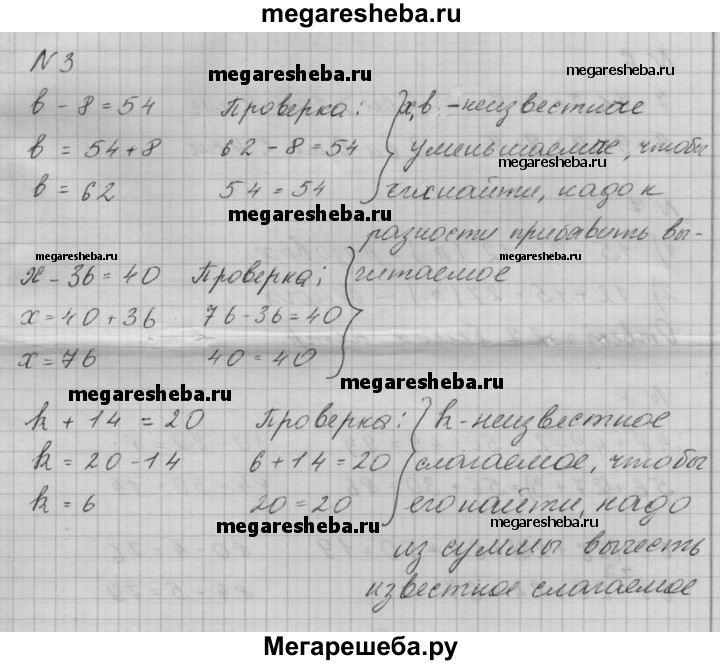 megaresheba.ru
N 3
megaresheba.ru
megaresheba.ru
в - 8 = 54 Проверка: х,в - неизвестные
в = 54 + 8 62 - 8 = 54 уменьшаемые, чтобы
megaresheba.ru
в = 62 54 = 54 их найти, надо к
megaresheba.ru
разности прибавить вы-
megaresheba.ru
megaresheba.ru
х - 36 = 40 Проверка: читаемое
х = 40 + 36 76 - 36 = 40
х = 76 40 = 40
megaresheba.ru
megaresheba.ru
k + 14 = 20 Проверка: k - неизвестное
k = 20 - 14 6 + 14 = 20 слагаемое, чтобы
k = 6 20 = 20 его найти, надо
megaresheba.ru
megaresheba.ru
из суммы вычесть
известное слагаемое
Мегарешеба.ру